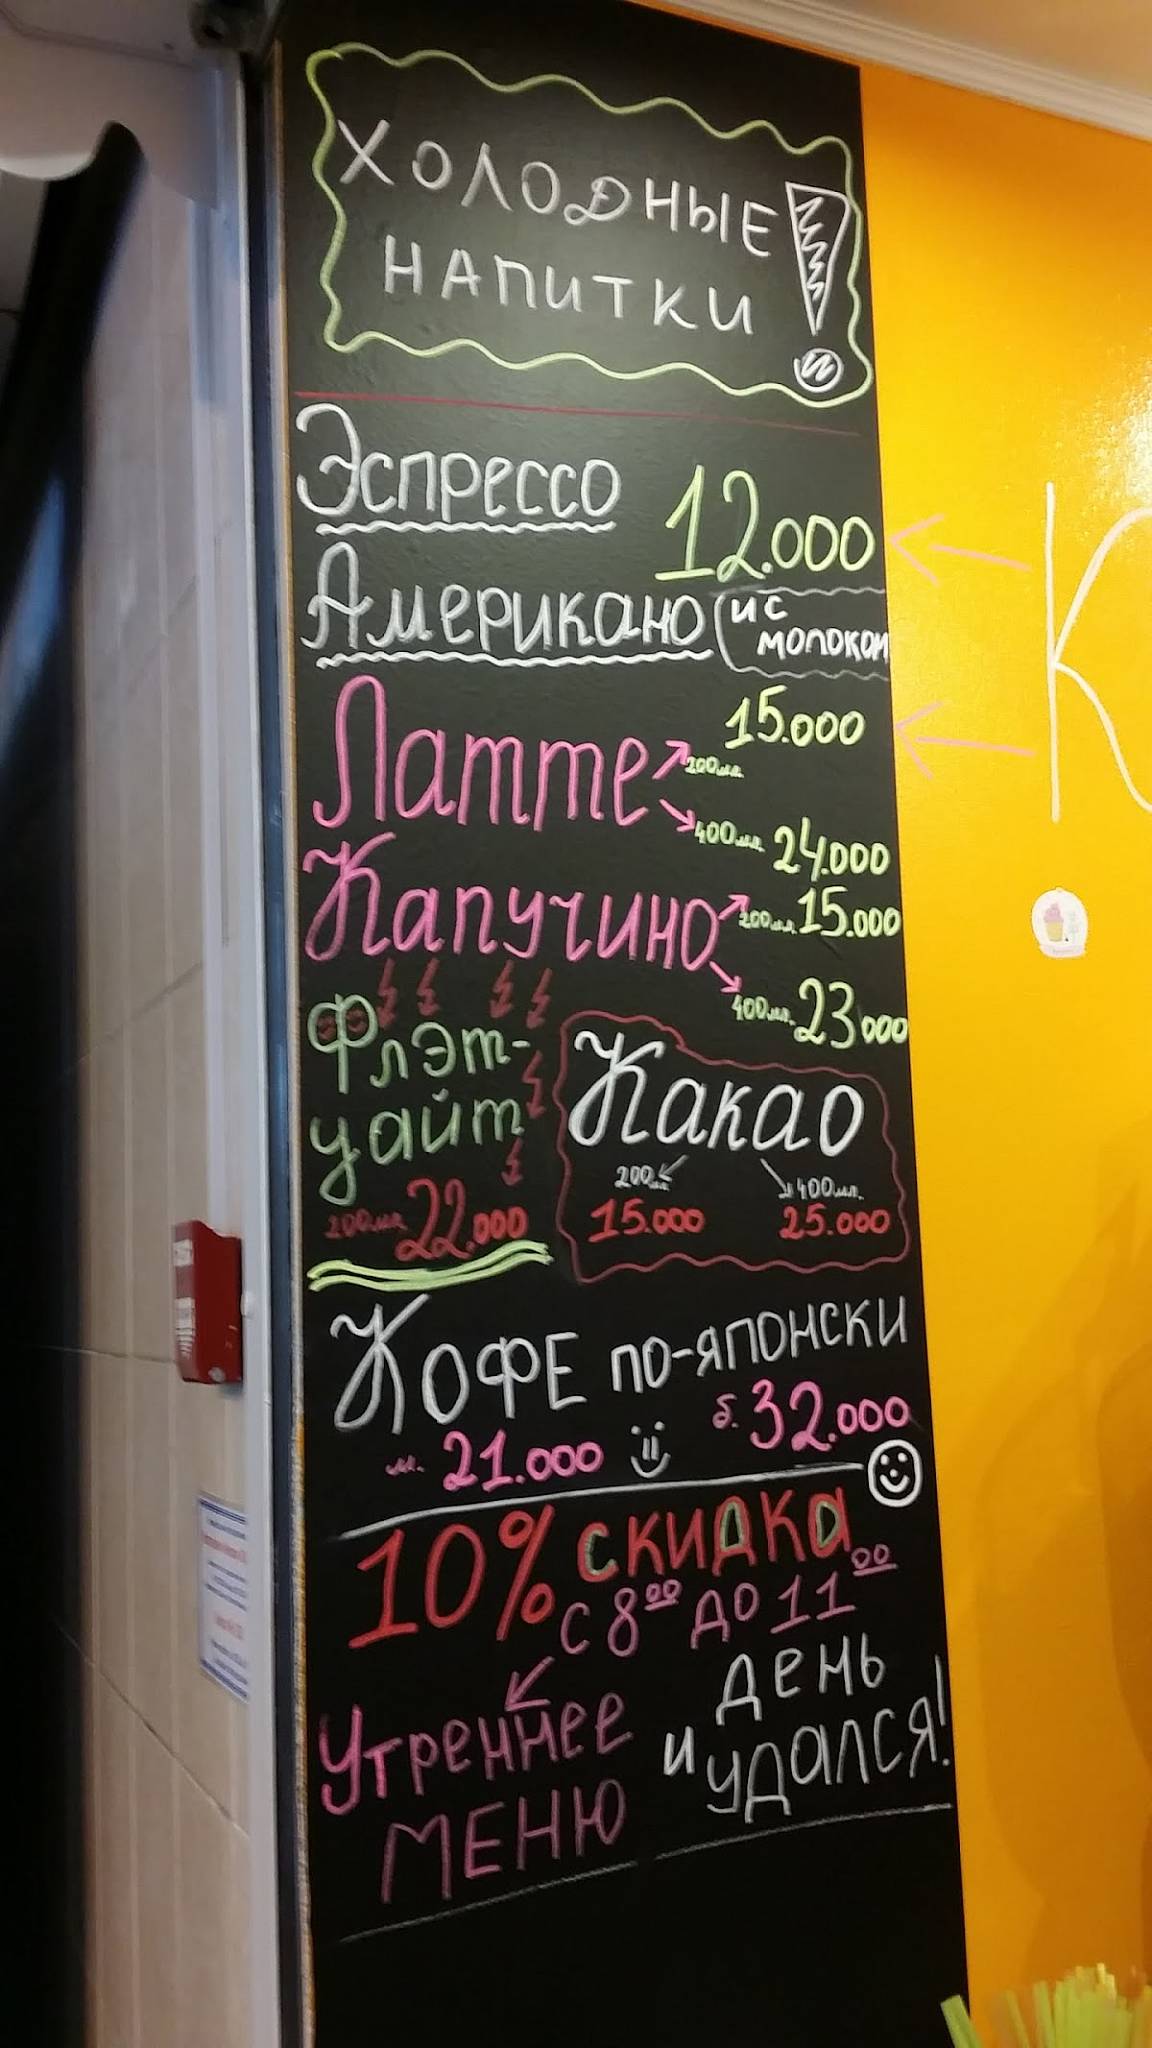 ХОЛОДНЫЕ
НАПИТКИ!
Эспрессо 12.000
Американо (и с
молоком
Латте 200мл. 15.000
400мл. 24.000
Капучино 200мл. 15.000
400мл. 23 000
Флэт-
уайт
200мл. 22.000
Какао
200мл 400мл.
15.000 25.000
КОФЕ по-японски
м. 21.000 б. 32.000
10% скидка
с 8⁰⁰ до 11⁰⁰
Утреннее
МЕНЮ
День
и удался!
К